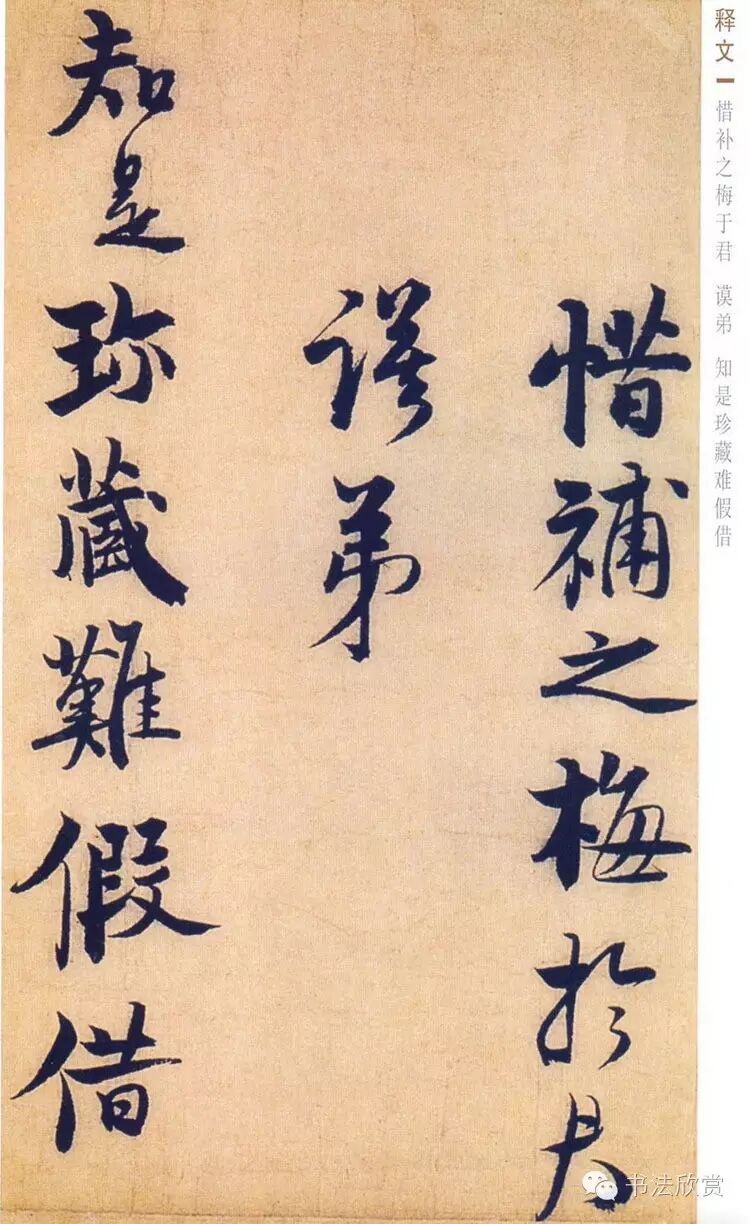 释文
惜补之梅于君 谟弟 知是珍藏难假借
惜補之梅於君
謨弟
知是珍藏難假借
书法欣赏